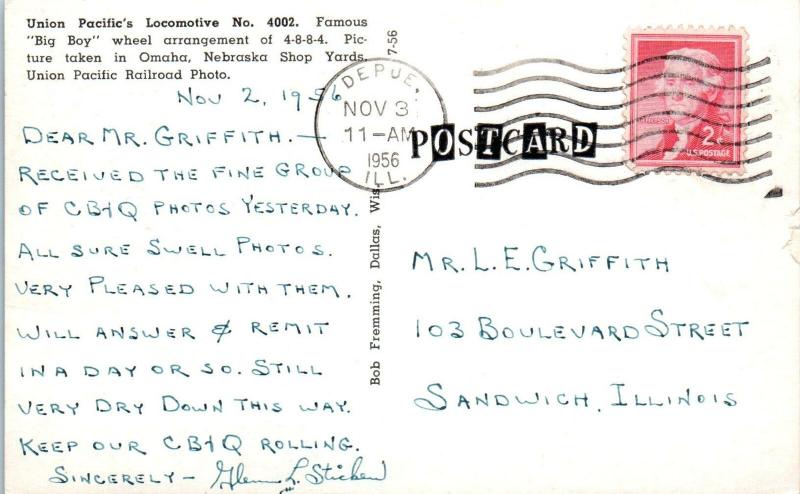 Union Pacific's Locomotive No. 4002. Famous
"Big Boy" wheel arrangement of 4-8-8-4. Pic-
ture taken in Omaha, Nebraska Shop Yards.
Union Pacific Railroad Photo.
7-56
Nov 2, 1956
DEAR MR. GRIFFITH. —
RECEIVED THE FINE GROUP
OF CB&Q PHOTOS YESTERDAY.
ALL SURE SWELL PHOTOS.
VERY PLEASED WITH THEM.
WILL ANSWER & REMIT
IN A DAY OR SO. STILL
VERY DRY DOWN THIS WAY.
KEEP OUR CB&Q ROLLING.
SINCERELY – Glenn L. Sticken
Bob Fremming, Dallas, Wis.
DEPUE,
NOV 3
11–AM
1956
ILL.
POSTCARD
2¢
U.S. POSTAGE
MR. L. E. GRIFFITH
103 BOULEVARD STREET
SANDWICH, ILLINOIS